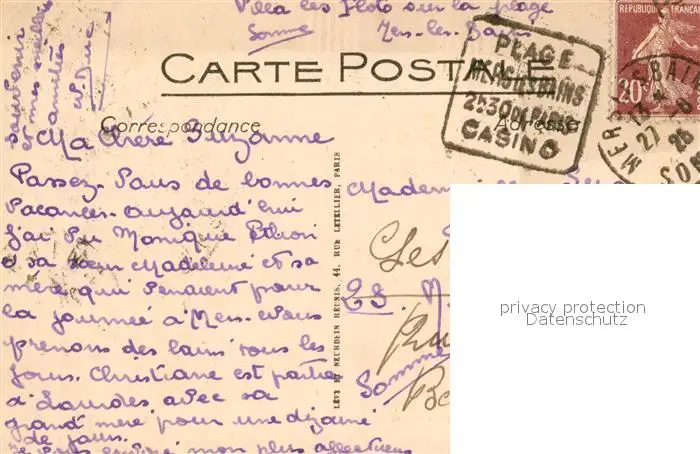 Villa les Flots sur la plage
Somme Mers-les-Bains
souvenir
et mes meilleures
amitiés
CARTE POSTALE
Correspondance
Adresse
PLAGE
MERS LES BAINS
2h30 DE PARIS
CASINO
REPUBLIQUE FRANÇAISE
20c
MERS-LES-BAINS
27
26
SO
Ma Chère Suzanne
Passez-vous de bonnes
vacances. aujourd'hui
j'ai vu Monique
sa sœur Madeleine et sa
mère qui venaient pour
la journée à Mers. Nous
prenons des bains tous les
jours. Christiane est partie
à avec sa
grand'mère pour une dizaine
de jours.
Je vous envoie mon plus affectueux
LÉVY ET NEURDEIN RÉUNIS, 44, RUE LETELLIER, PARIS
Mademoiselle
Les
Somme
privacy protection
Datenschutz